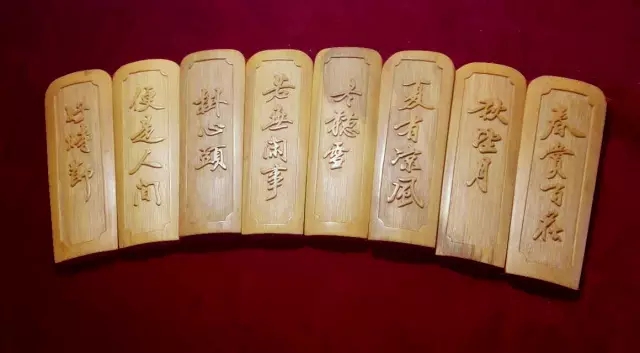 春賞百花
秋望月
夏有涼風
冬聽雪
若無閑事
掛心頭
便是人間
好時節